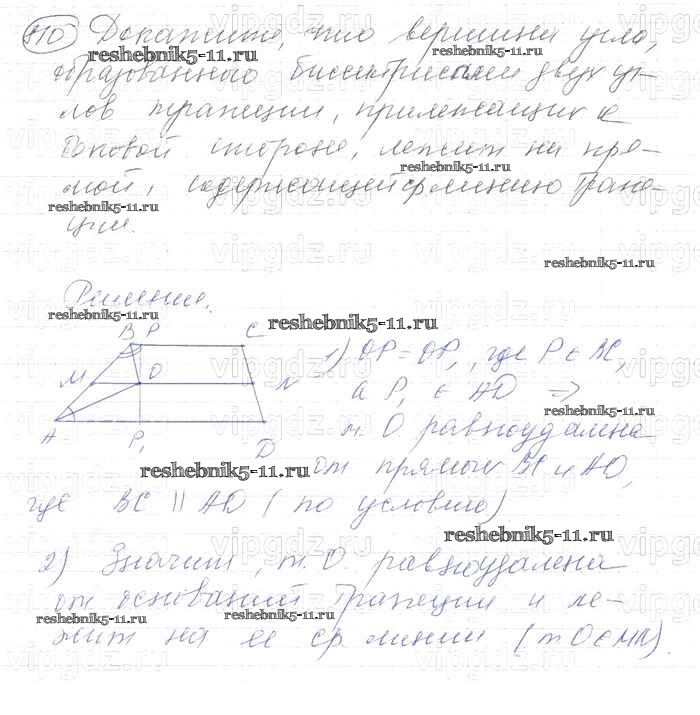 810 Докажите, что вершина угла,
reshebnik5-11.ru
образованного биссектрисами двух уг-
лов трапеции, прилежащих к
боковой стороне, лежит на пря-
reshebnik5-11.ru
мой, содержащей ср. линию трапе-
reshebnik5-11.ru
ции.
reshebnik5-11.ru
Решение.
reshebnik5-11.ru
reshebnik5-11.ru
B P C
M O N
A P₁ D
1) OP = OP₁, где P ∈ BC,
а P₁ ∈ AD ⇒
reshebnik5-11.ru
т. O равноудалена
reshebnik5-11.ru
от прямых BC и AD,
где BC || AD (по условию)
reshebnik5-11.ru
2) Значит, т. O равноудалена
от оснований трапеции и ле-
reshebnik5-11.ru
reshebnik5-11.ru
reshebnik5-11.ru
жит на ее ср. линии (т. O ∈ MN).
vipgdz.ru